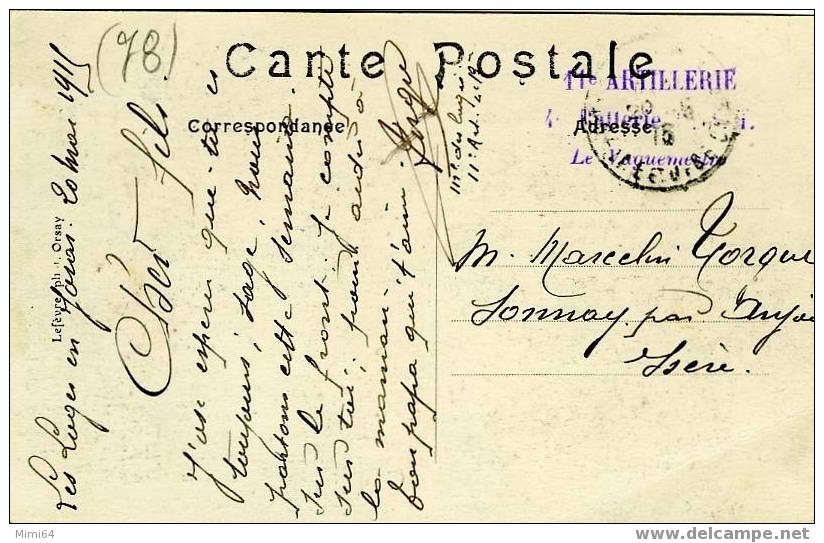 (78)
Carte Postale
Correspondance
Adresse
11e ARTILLERIE
4e Batterie
Le Vaguemestre
Lefèvre, ph. Orsay
Les Loges en Josas. 20 mai 1915
Cher fils
J'ose espérer que tu es
toujours sage. Nous
partons cette semaine
sur le front. Je compte
sur toi pour aider à
la maman.
Ton papa qui t'aime.
11e Art.
M. Marcelin
Sonnay par Anjou
Isère.
Mimi64
delcampe.net